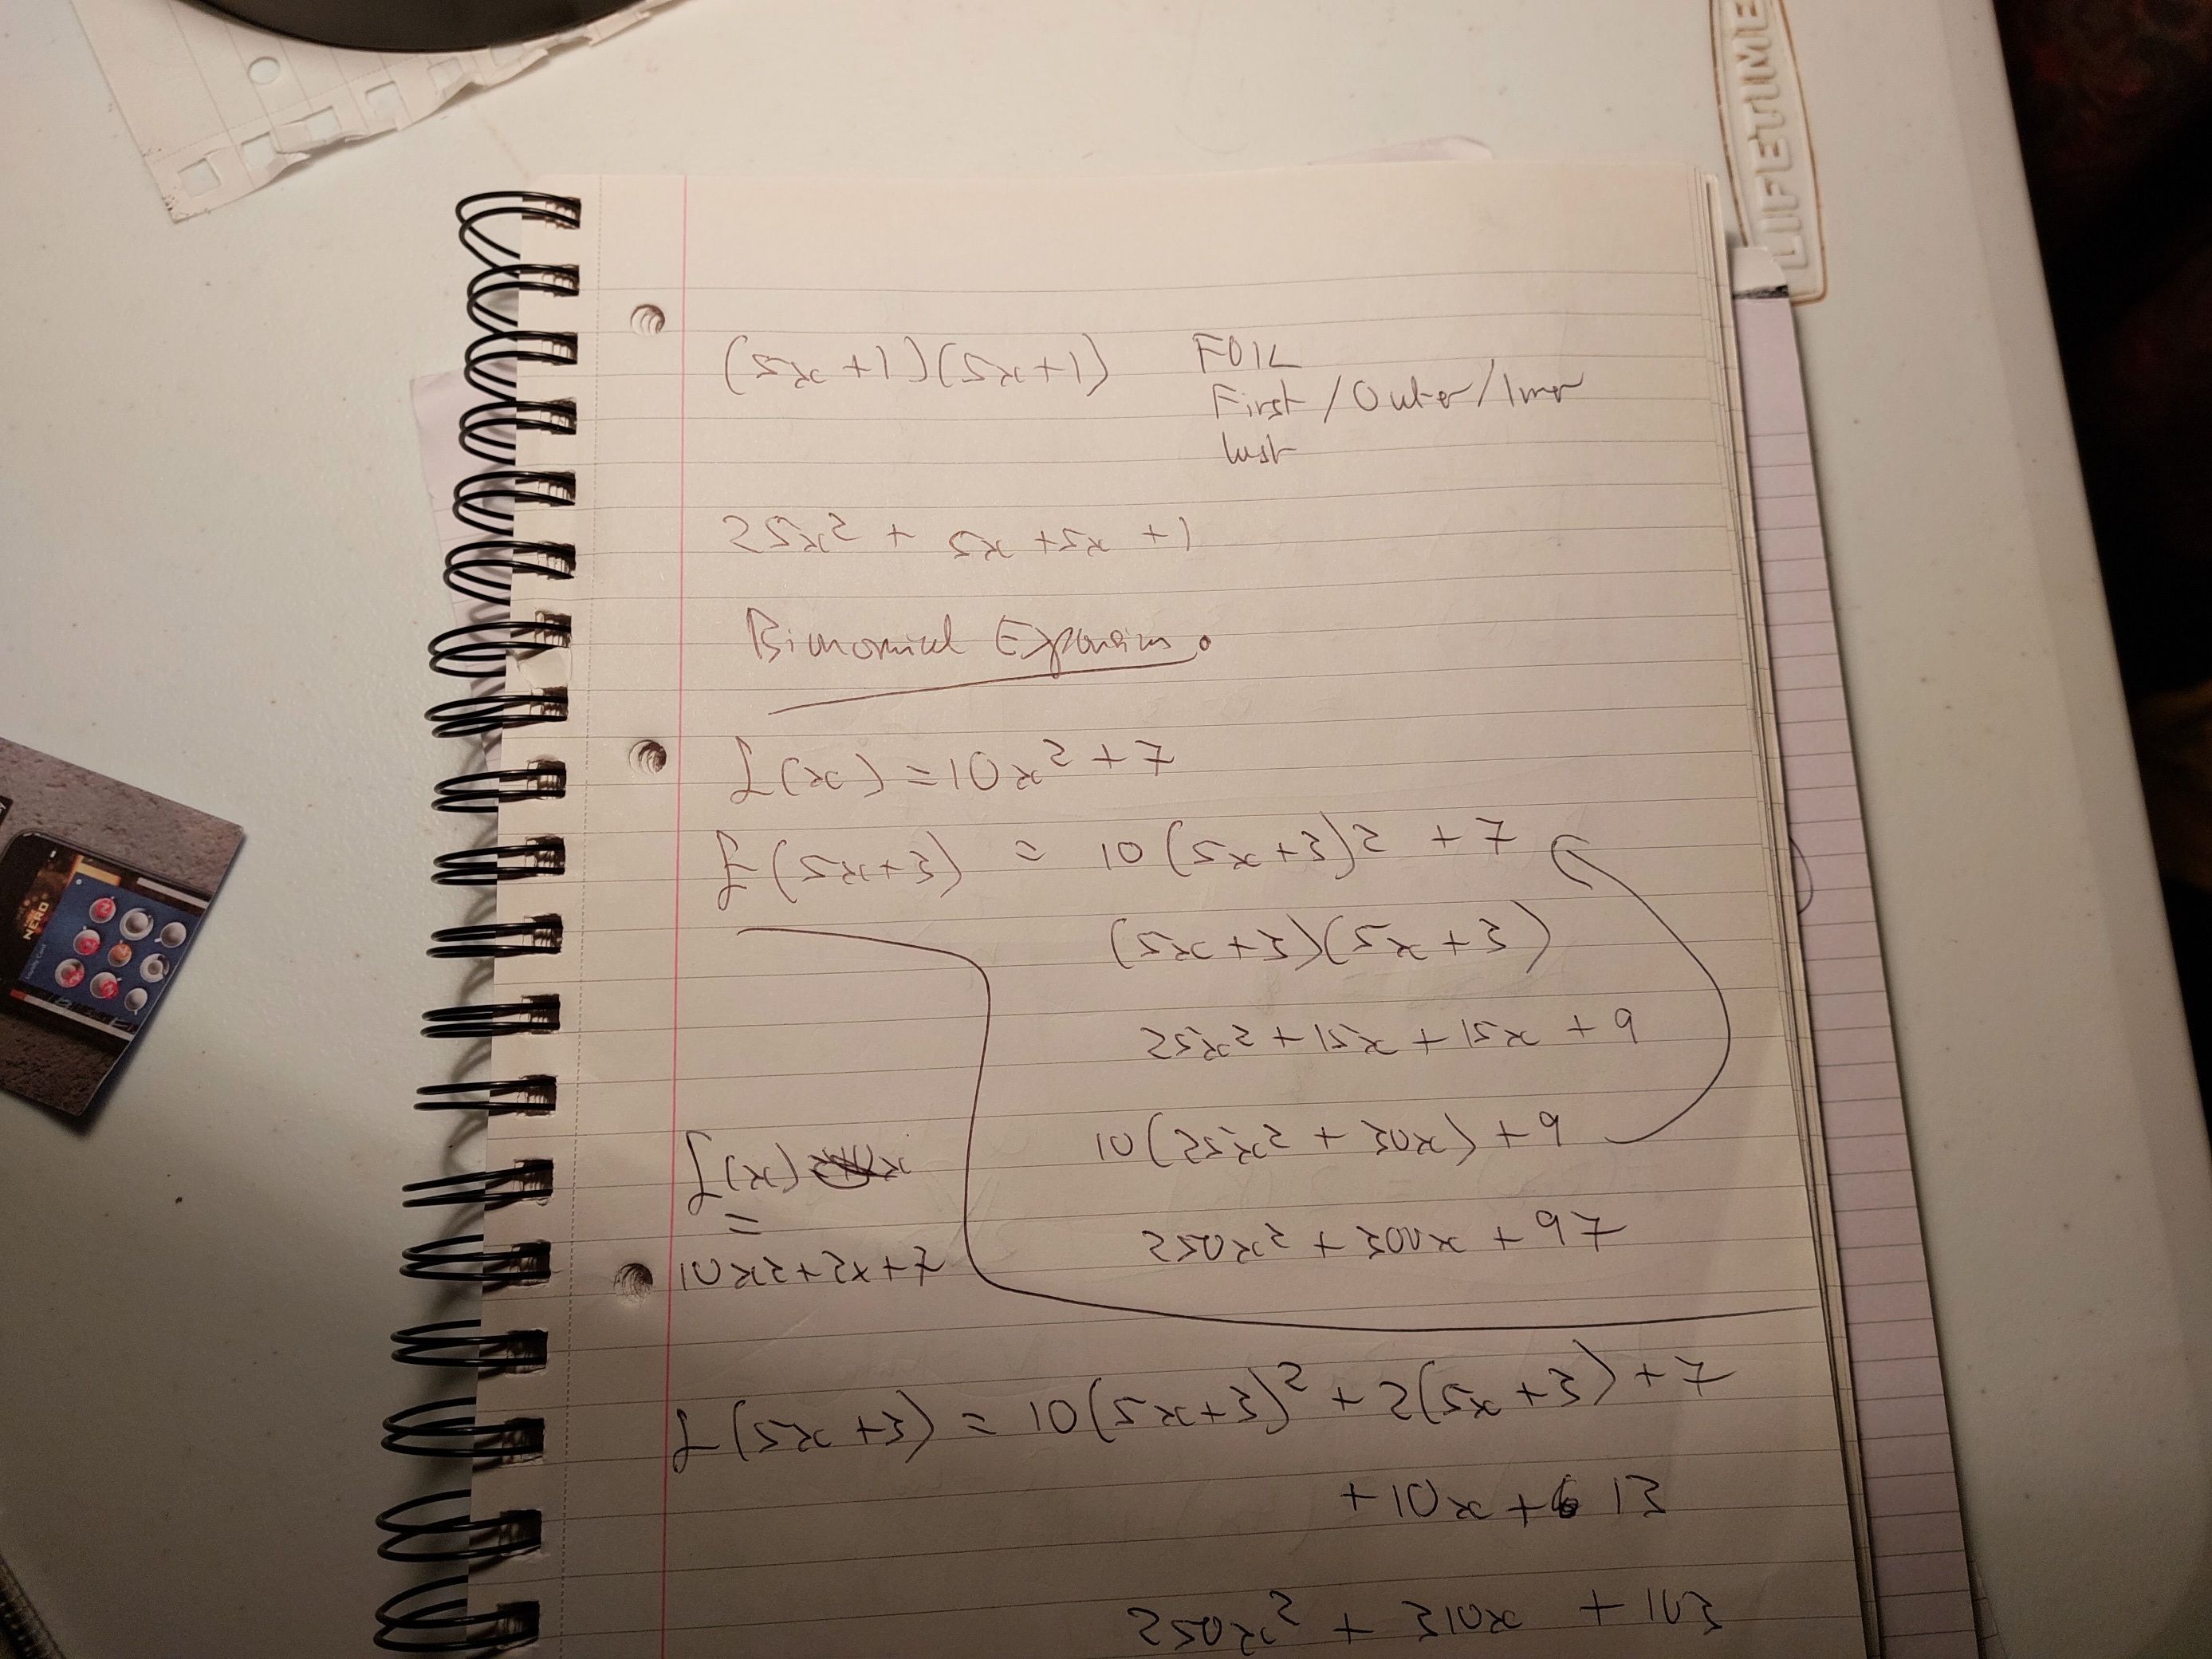 (5x+1)(5x+1)
FOIL
First/Outer/Inner
last
25x² + 5x+5x +1
Binomial Expansion.
f(x) = 10x² + 7
f(5x+3) = 10(5x+3)² + 7
(5x+3)(5x+3)
25x² + 15x + 15x + 9
10(25x² + 30x) + 9
250x² + 300x + 97
f(x)
=
10x²+2x+7
f(5x+3) = 10(5x+3)² + 2(5x+3) + 7
+10x+ 13
250x² + 310x + 103
LIFETIME
NERO